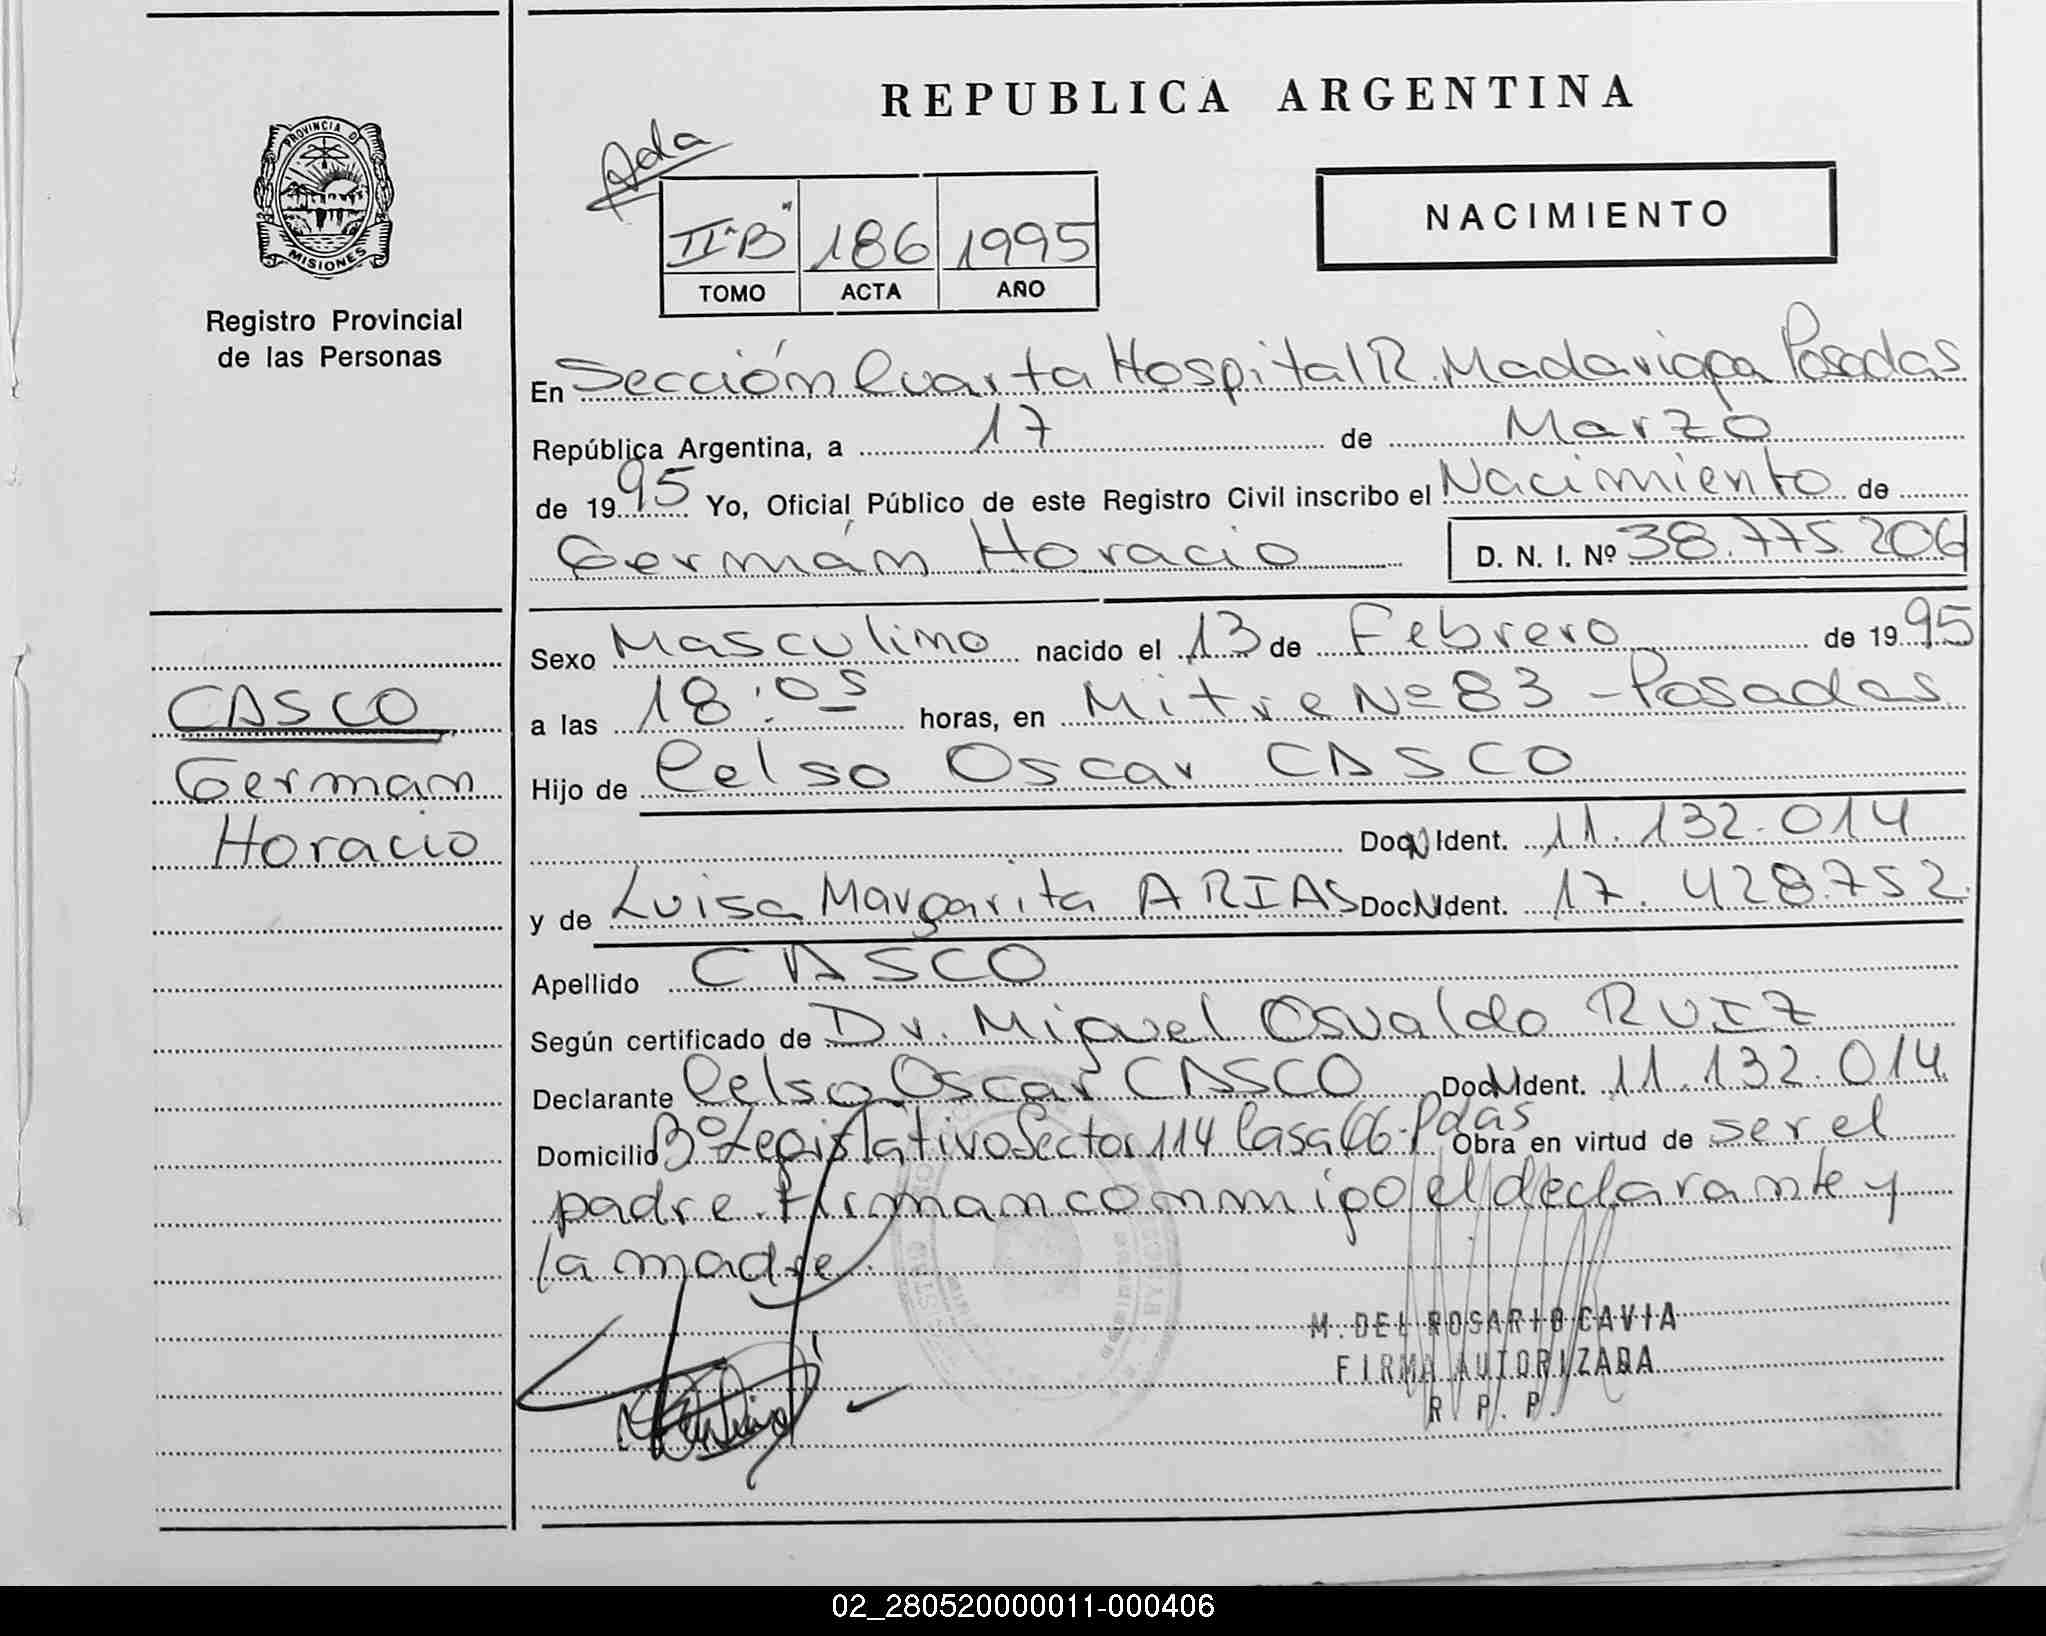 REPUBLICA ARGENTINA
PROVINCIA D
MISIONES
Registro Provincial
de las Personas
Ada
II-"B" 186 1995
TOMO ACTA AÑO
NACIMIENTO
En Sección Cuarta Hospital R. Madariaga Posadas
República Argentina, a 17 de Marzo
de 1995 Yo, Oficial Público de este Registro Civil inscribo el Nacimiento de
Germán Horacio D. N. I. Nº 38.775.206
Sexo Masculino nacido el 13 de Febrero de 1995
a las 18:05 horas, en Mitre Nº 83 - Posadas
CASCO
Hijo de Celso Oscar CASCO
German
Horacio
Doc N Ident. 11.132.014
y de Luisa Margarita ARIAS Doc N Ident. 17.428.752
Apellido CASCO
Según certificado de Dr. Miguel Osvaldo RUIZ
Declarante Celso Oscar CASCO Doc N Ident. 11.132.014
Domicilio Bº Legislativo Sector 114 Casa 66-Pdas Obra en virtud de ser el
padre. Firman conmigo el declarante y
la madre.
M. DEL ROSARIO CAVIA
FIRMA AUTORIZADA
R. P. P.
02_280520000011-000406